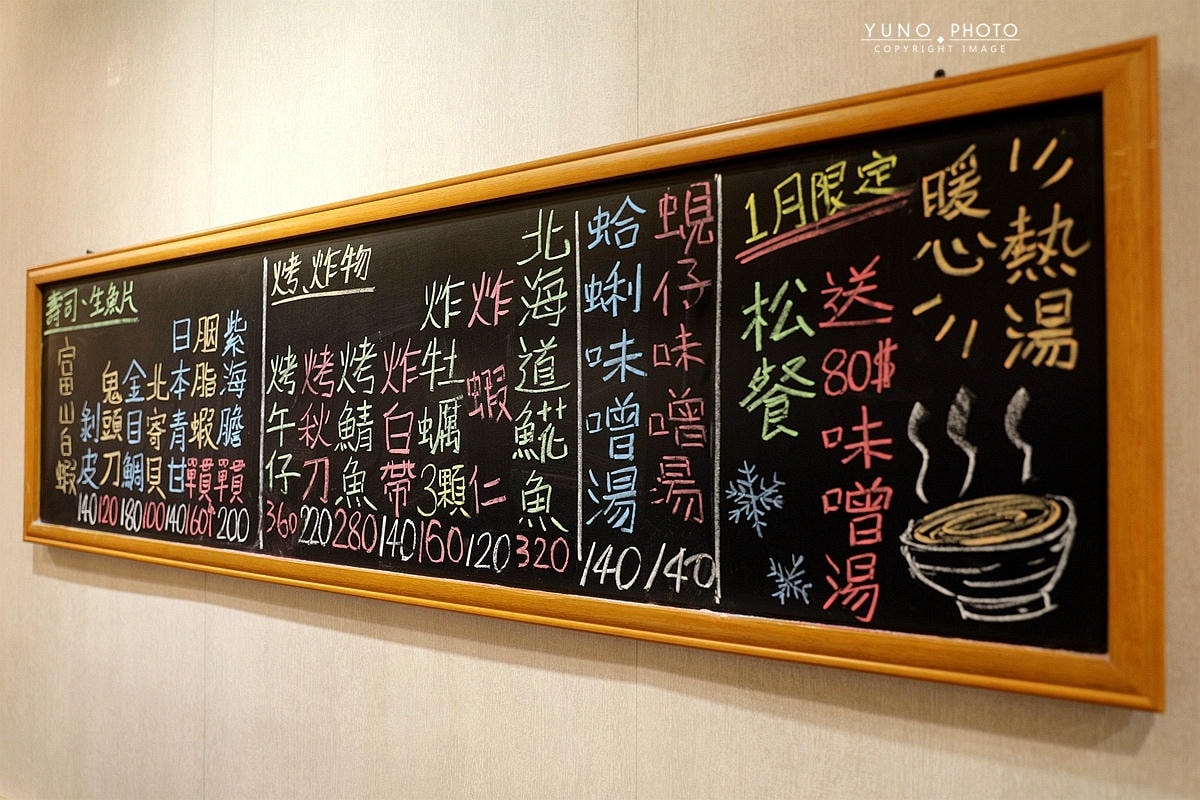 YUNO PHOTO
COPYRIGHT IMAGE
壽司、生魚片
富山白蝦
剝皮140
鬼頭刀120
金目鯛180
北寄貝100
日本青甘140
胭脂蝦單貫160
紫海膽單貫200
烤、炸物
烤午仔360
烤秋刀220
烤鯖魚280
炸白帶140
炸牡蠣3顆160
炸蝦仁120
北海道𩸽魚320
蛤蜊味噌湯/140
蜆仔味噌湯/140
1月限定
松餐
送80$味噌湯
暖心
熱湯